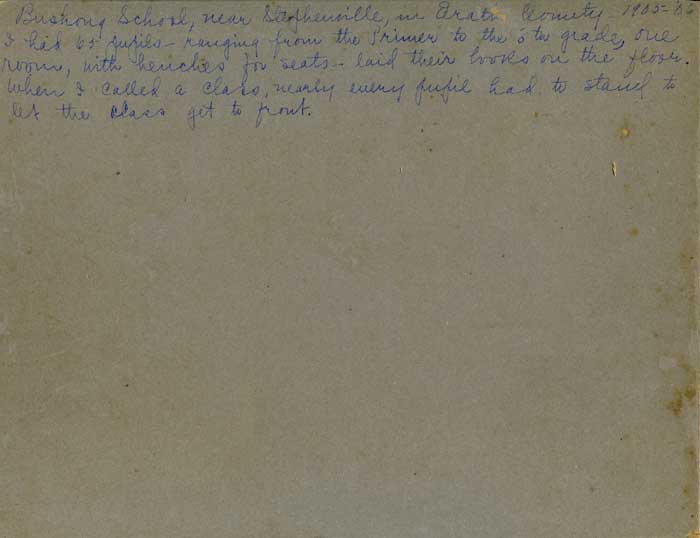 Bushong School, near Stephenville, in Erath County 1905-'06
I had 65 pupils - ranging from the Primer to the 8th grade, one
room, with benches for seats - laid their books on the floor.
When I called a class, nearly every pupil had to stand to
let the class get to front.